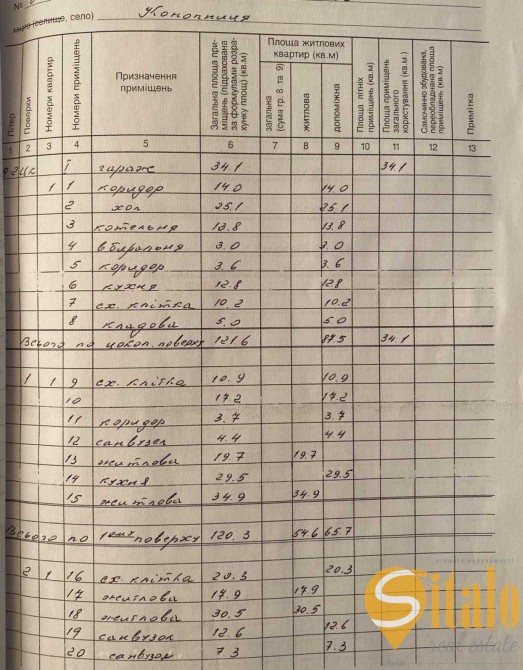 №
місто (селище, село) Уконопниця
Літер
Поверхи
Номери квартир
Номери приміщень
Призначення приміщень
Загальна площа приміщень (підрахована за формулами розрахунку площ) (кв.м)
Площа житлових квартир (кв.м)
загальна (сума гр. 8 та 9)
житлова
допоміжна
Площа літніх приміщень (кв.м)
Площа приміщень загального користування (кв.м)
Самочинно збудована, переобладнана площа приміщень (кв.м)
Примітка
1 2 3 4 5 6 7 8 9 10 11 12 13
цок I гараж 34.1 34.1
1 1 коридор 14.0 14.0
2 хол 25.1 25.1
3 котельня 13.8 13.8
4 вбиральня 3.0 3.0
5 коридор 3.6 3.6
6 кухня 12.8 12.8
7 сх. клітка 10.2 10.2
8 кладова 5.0 5.0
Всього по цокол. поверху 121.6 87.5 34.1
1 1 9 сх. клітка 10.9 10.9
10 17.2 17.2
11 коридор 3.7 3.7
12 санвузол 4.4 4.4
13 житлова 19.7 19.7
14 кухня 29.5 29.5
15 житлова 34.9 34.9
Всього по 1ому поверху 120.3 54.6 65.7
2 1 16 сх. клітка 20.3 20.3
17 житлова 17.9 17.9
18 житлова 30.5 30.5
19 санвузол 12.6 12.6
20 санвузол 7.3 7.3
агенція нерухомості
Sitalo
real estate